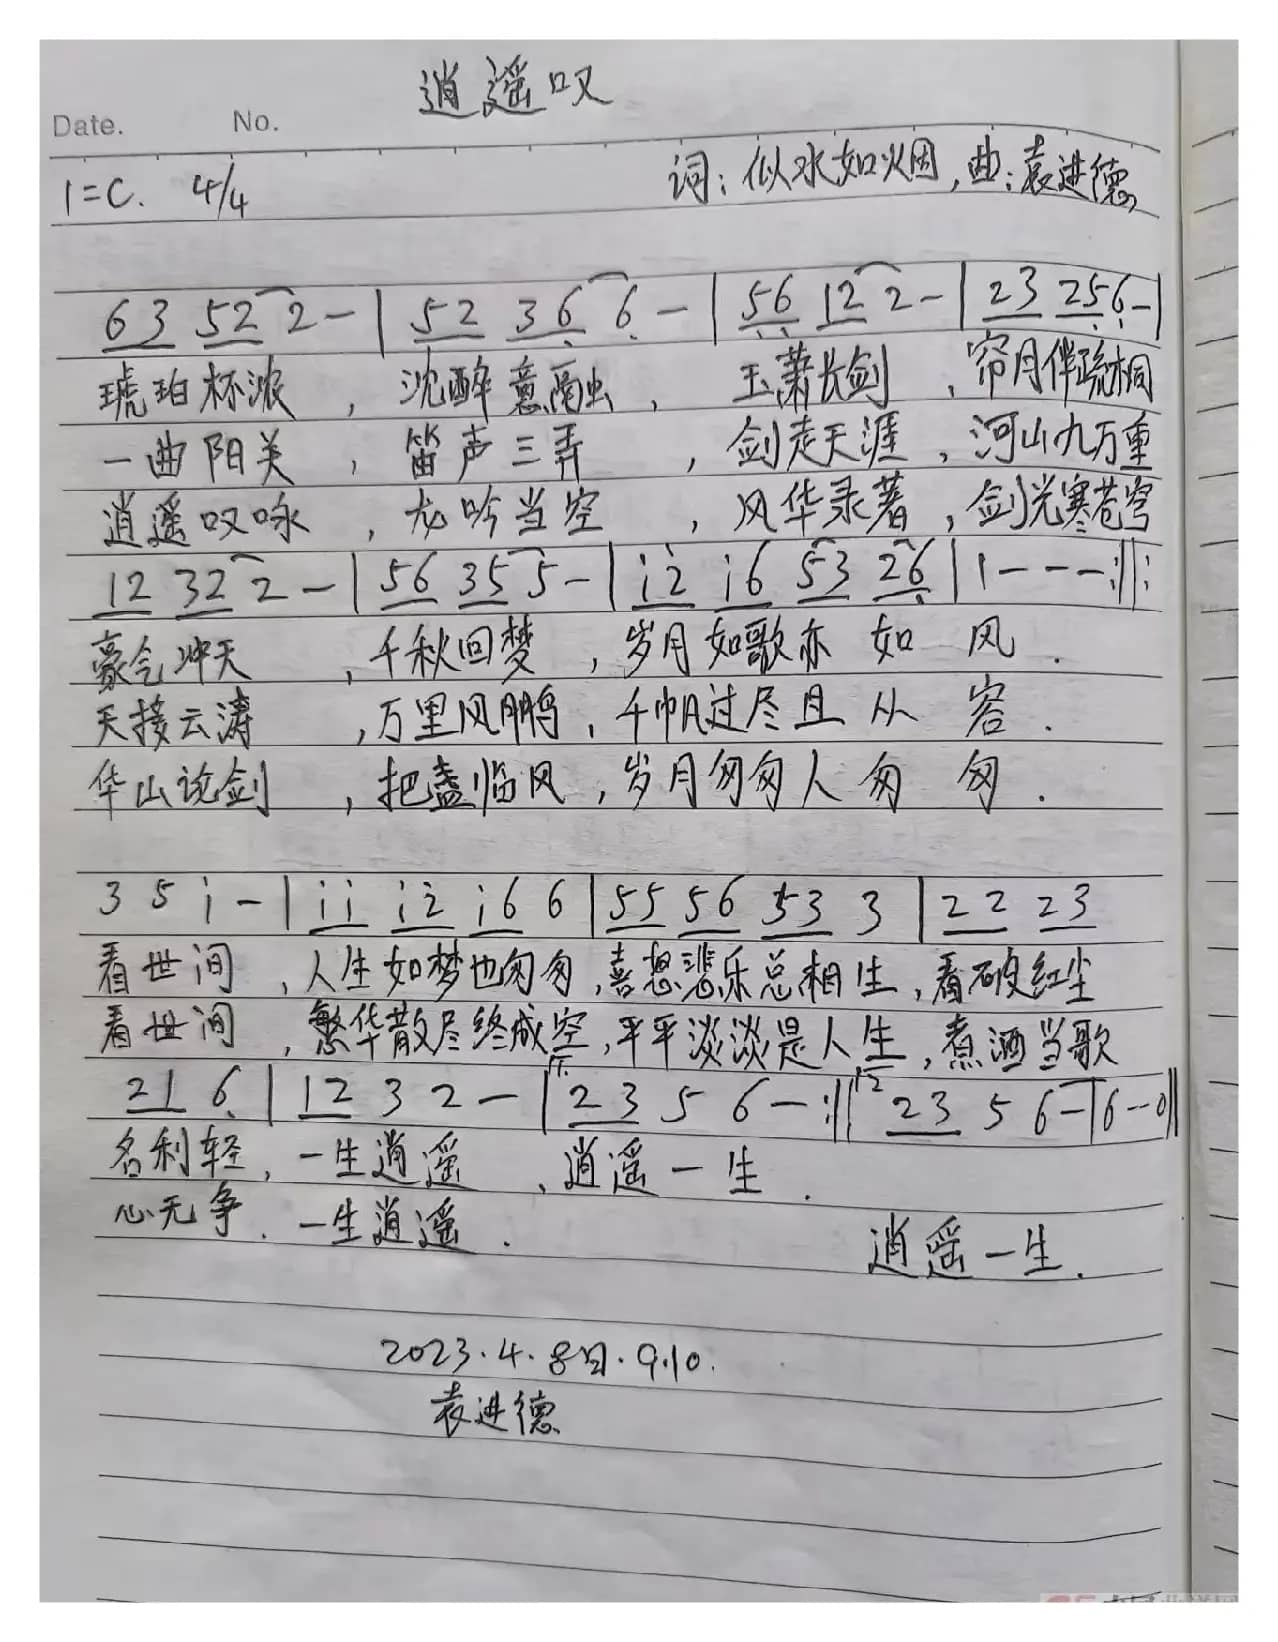 逍遥叹
Date. No.
1=C. 4/4 词:似水如烟,曲:袁进德
63 52 2 - | 52 36 6 - | 56 12 2 - | 23 25 6 - |
琥珀杯浓 , 沈醉意融虫 , 玉萧长剑 , 帘月伴疏桐
一曲阳关 , 笛声三弄 , 剑走天涯 , 河山九万重
逍遥叹咏 , 龙吟当空 , 风华录著 , 剑光寒苍穹
12 32 2 - | 56 35 5 - | i2 i6 53 26 | 1 - - - :||:
豪气冲天 , 千秋回梦 , 岁月如歌亦如风 .
天接云涛 , 万里风鹏 , 千帆过尽且从容 .
华山论剑 , 把盏临风 , 岁月匆匆人匆匆 .
3 5 i - | ii i2 i6 6 | 55 56 53 3 | 22 23
看世间 , 人生如梦也匆匆 , 喜怒悲乐总相生 , 看破红尘
看世间 , 繁华散尽终成空 , 平平淡淡是人生 , 煮酒当歌
21 6 | 12 3 2 - | 1. 23 5 6 - :|| 2 23 5 6 - | 6 - - 0 ||
名利轻 , 一生逍遥 , 逍遥一生 .
心无争 . 一生逍遥 .
逍遥一生 .
2023.4.8日.9.10.
袁进德